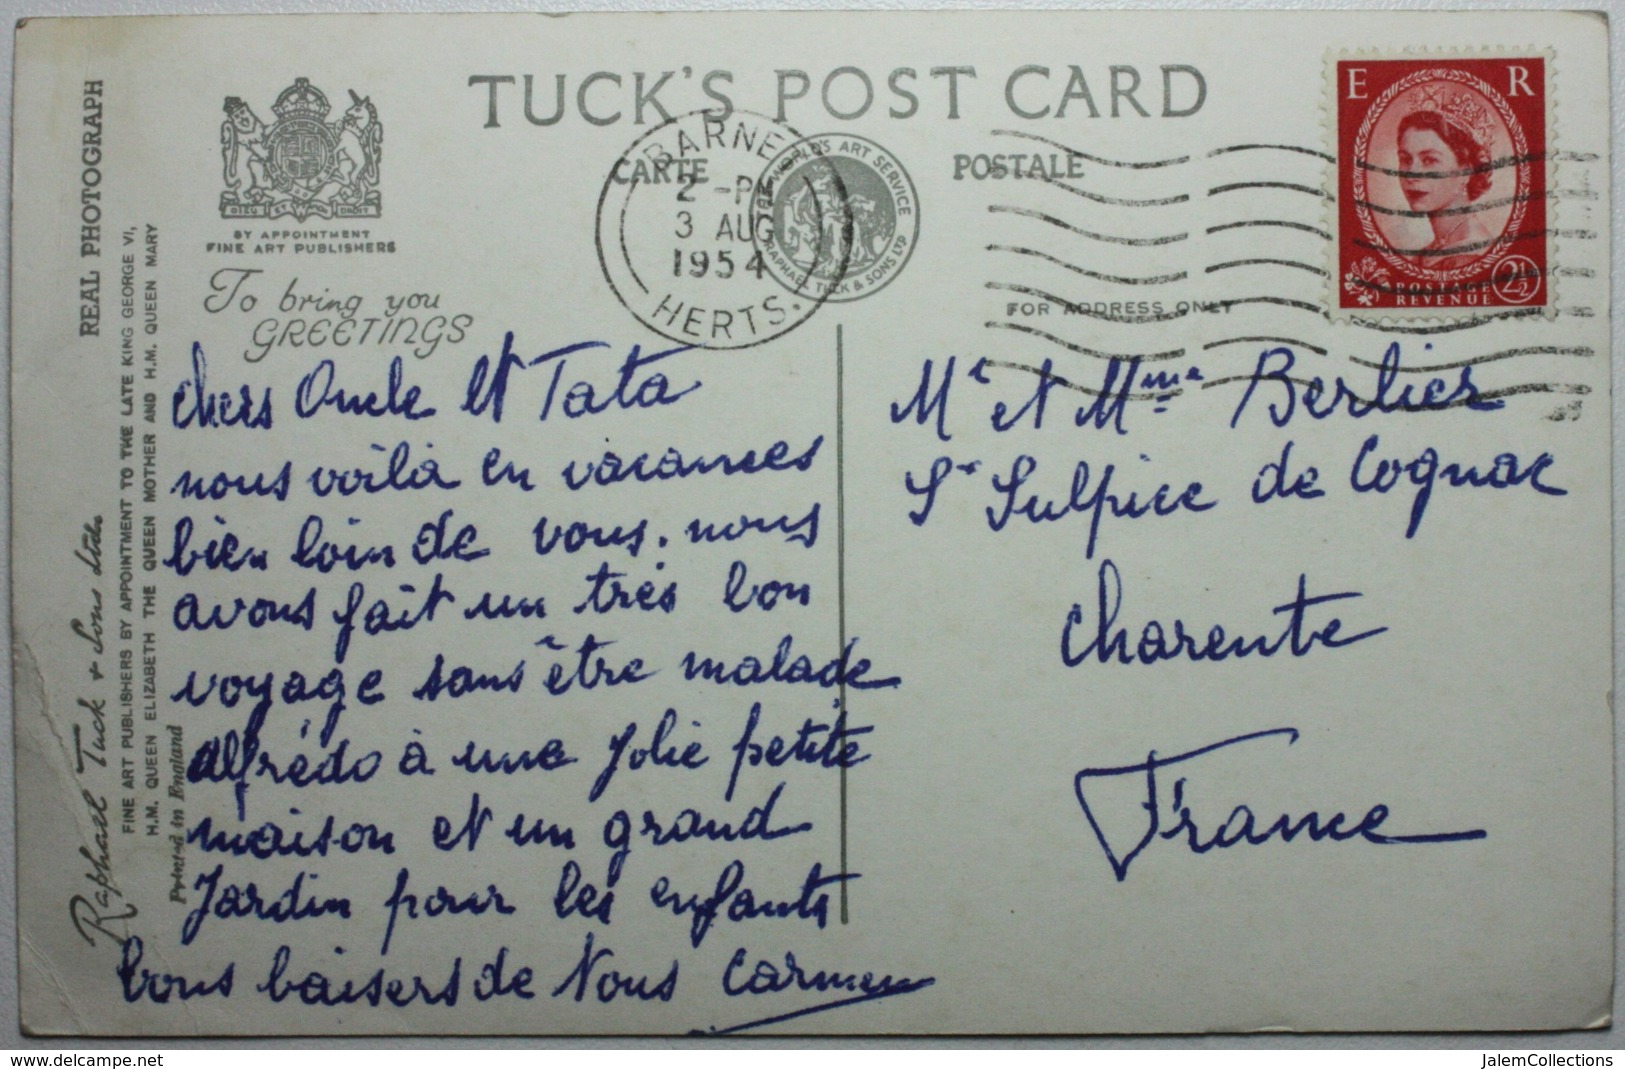 TUCK'S POST CARD
CARTE POSTALE
BY APPOINTMENT
FINE ART PUBLISHERS
DIEU ET MON DROIT
To bring you
GREETINGS
BARNET
2 - PM
3 AUG
1954
HERTS.
WORLD'S ART SERVICE
RAPHAEL TUCK & SONS LTD
FOR ADDRESS ONLY
E R
POSTAGE
REVENUE
2½
REAL PHOTOGRAPH
Raphael Tuck & Sons Ltd.
FINE ART PUBLISHERS BY APPOINTMENT TO THE LATE KING GEORGE VI,
H.M. QUEEN ELIZABETH THE QUEEN MOTHER AND H.M. QUEEN MARY
Printed in England
chers Oncle et Tata
nous voilà en vacances
bien loin de vous. nous
avons fait un très bon
voyage sans être malade
alfrédo à une jolie petite
maison et un grand
Jardin pour les enfants
bons baisers de Nous Carmen
Mr et Mme Berlier
St Sulpice de Cognac
Charente
France
delcampe.net
JalemCollections